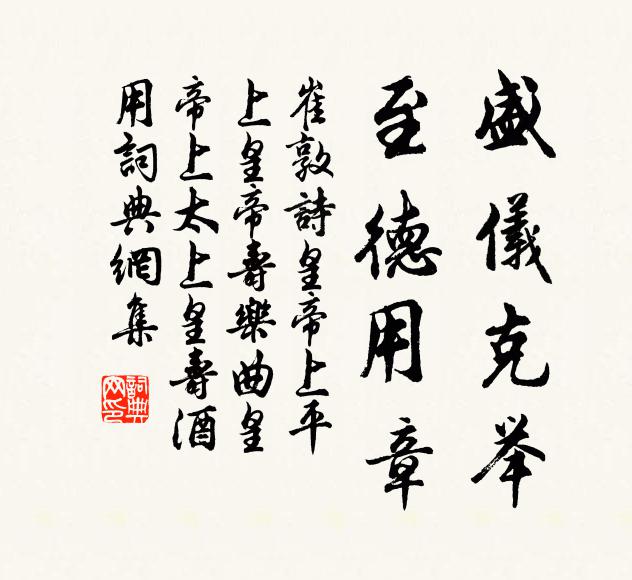 盛儀克举
至德用章
崔敦詩皇帝上平
上皇帝壽樂曲皇
帝上太上皇壽酒
用詞典網集
詞典网印